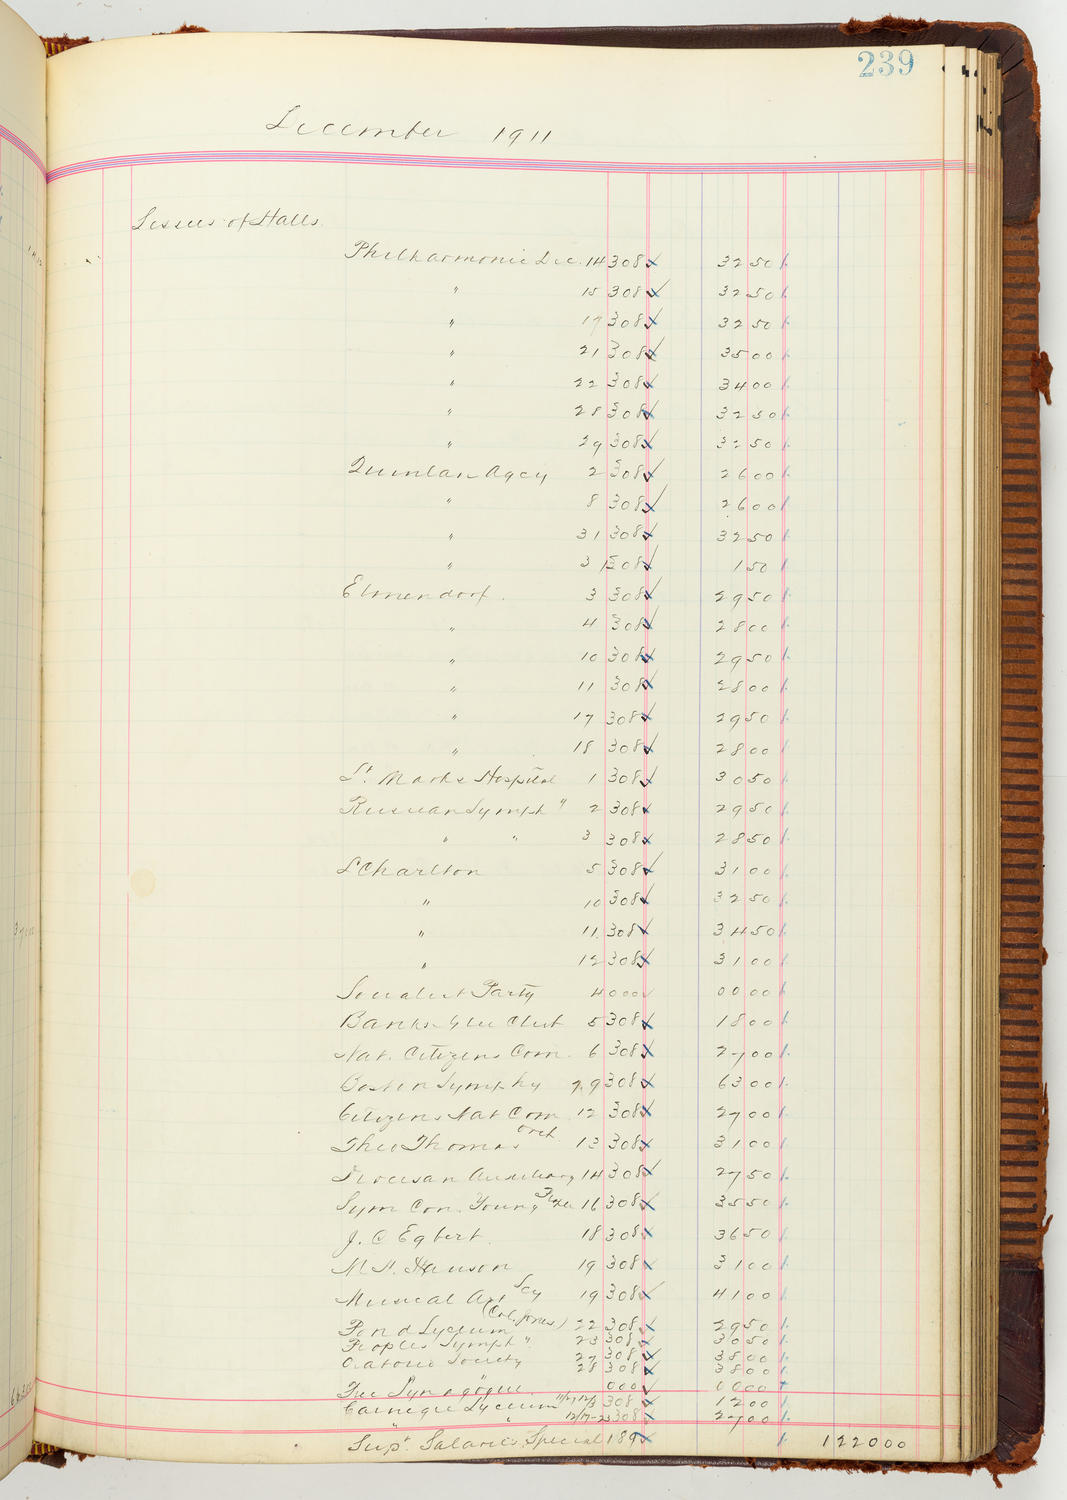 239
December 1911
Lessees of Halls.
Philharmonic Dec. 14 308 3250
" 15 308 3250
" 17 308 3250
" 21 308 3500
" 22 308 3400
" 28 308 3250
" 29 308 3250
Quinlan Agcy 2 308 2600
" 8 308 2600
" 31 308 3250
" 31 308 150
Elmendorf. 3 308 2950
" 4 308 2800
" 10 308 2950
" 11 308 2800
" 17 308 2950
" 18 308 2800
St. Marks Hospital 1 308 3050
Russian Symph " 2 308 2950
" " 3 308 2850
L Charlton 5 308 3100
" 10 308 3250
" 11 308 3450
" 12 308 3100
Socialist Party 4 000 0000
Banks Glee Club 5 308 1800
Nat. Citizens Com. 6 308 2700
Boston Symphy 7.9 308 6300
Citizens Nat Com 12 308 2700
Theo Thomas Orch 13 308 3100
Diocesan Auxiliary 14 308 2750
Sym Con. Young 16 308 3550
J. C Egbert. 18 308 3650
M. H. Hanson 19 308 3100
Musical Art Scy 19 308 4100
Pond Lyceum (Col. Jones) 22 308 2950
Peoples Symph " 23 308 3050
Oratorio Society 27 308 3800
" 28 308 3800
Free Synagogue. 000 0000
Carnegie Lyceum 11/27 12/3 308 1200
" " 12/17-23 308 2700
Supt. Salaries, Special 189 122000